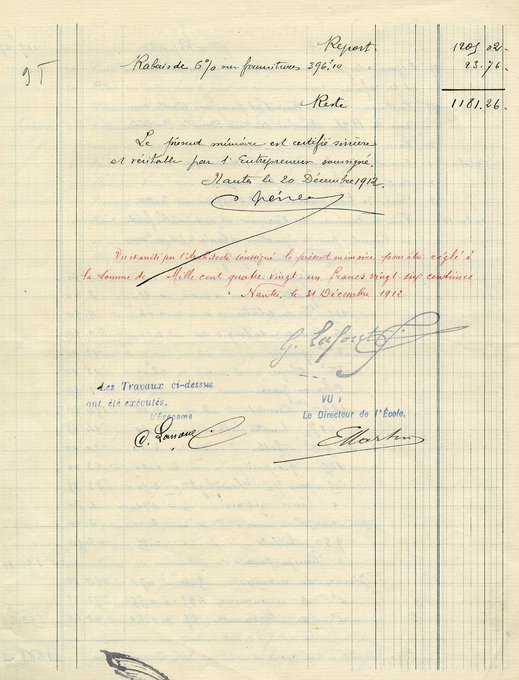 Report. 1205.02
9T
Rabais de 6% sur fournitures 396.10 23.76
Reste 1181.26
Le présent mémoire est certifié sincère
et véritable par l'Entrepreneur soussigné.
Nantes le 20 Décembre 1912
Vu et arrêté par l'Architecte soussigné le présent mémoire pour être réglé à
la somme de Mille cent quatre vingt un francs vingt six centimes
Nantes, le 31 Décembre 1912
G. Lafont
Les Travaux ci-dessus
ont été exécutés.
L'Econome
VU :
Le Directeur de l'École.
EMartin